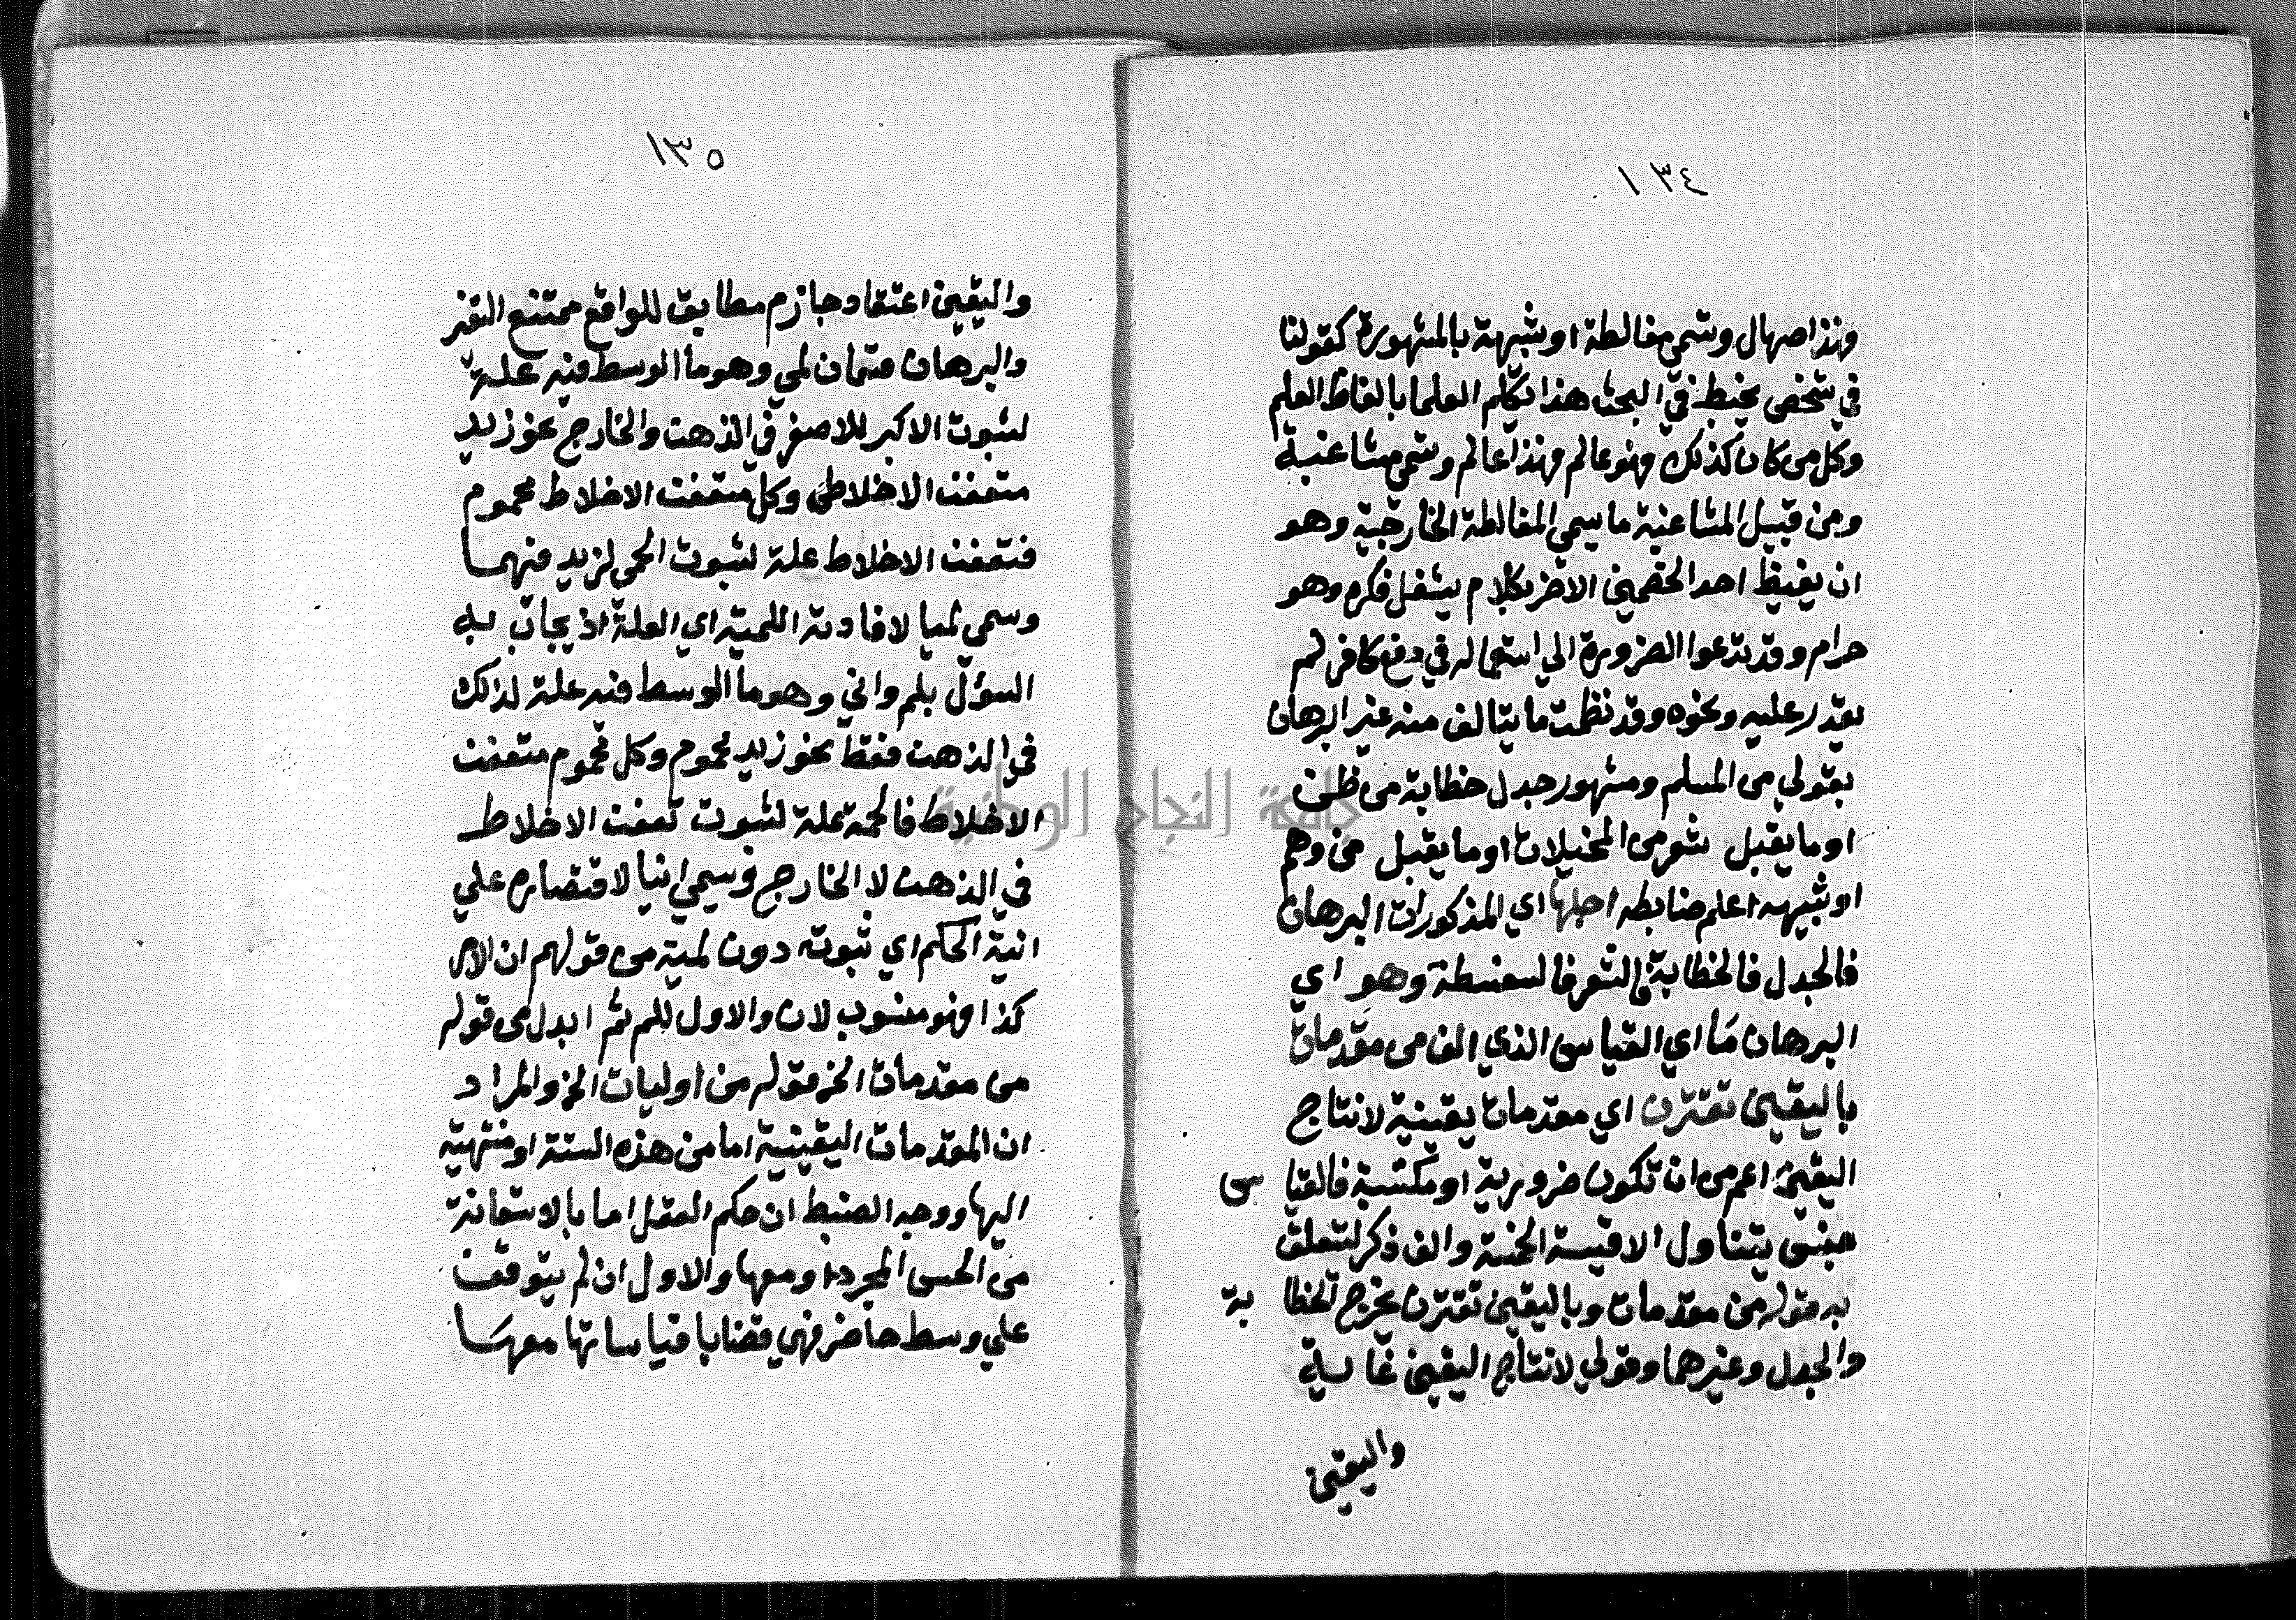 ١٣٤
فهذا صهال وتسمى مغالطة او شبهة بالمشهورة كقولنا
في شخص يخبط في البحث هذا تكلم العلما بالفاظ العلم
وكل من كان كذلك فهو عالم فهذا عالم وتسمى مشاغبة
ومن قبيل المشاغبة ما يسمى المغالطة الخارجية وهو
ان يغيظ احد الخصمين الاخر بكلام يشغل فكره وهو
حرام وقد تدعوا الضرورة الي استعماله في دفع كافر لم
يقدر عليه ونحوه وقد نظمت ما يتالف منه غير البرهان
بقولي من المسلم ومشهور جدل خطابة من ظن
او ما يقبل شعر من المخيلات او ما يقبل من وهم
او شبيهه اعلم ضابطه اجلها اي المذكورات البرهان
فالجدل فالخطابة فالشعر فالسفسطة وهو اي
البرهان ما اي القياس الذي الف من مقدمات
باليقين تقترن اي مقدمات يقينية لانتاج
اليقين اعم من ان تكون ضرورية او مكتسبة فالقياس
جنس يتناول الاقيسة الخمسة والف ذكر لتعلق
به قوله من مقدمات وباليقين تقترن يخرج الخطابة
والجدل وغيرهما وقولي لانتاج اليقين غاية
واليقين
١٣٥
واليقين اعتقاد جازم مطابق للواقع ممتنع التغير
والبرهان قسمان لمي وهو ما الوسط فيه علة
لثبوت الاكبر للاصغر في الذهن والخارج نحو زيد
متعفن الاخلاط وكل متعفن الاخلاط محموم
فتعفن الاخلاط علة لثبوت الحمى لزيد فيهما
وسمي لميا لافادته اللمية اي العلة اذ يجاب به
السؤل بلم واني وهو ما الوسط فيه علة لذلك
في الذهن فقط نحو زيد محموم وكل محموم متعفن
الاخلاط فالحمة علة لثبوت تعفن الاخلاط
في الذهن لا الخارج وسمي انيا لاقتصاره علي
انية الحكم اي ثبوته دون لمية من قولهم ان الامر
كذا فهو منسوب لان والاول للم ثم ابدل من قوله
من مقدمات الخ قوله من اوليات الخ والمراد
ان المقدمات اليقينية اما من هذه الستة او منتهية
اليها ووجه الضبط ان حكم العقل اما بالاستعانة
من الحس المجرد او معها والاول ان لم يتوقف
علي وسط حاضر فهي قضايا قياساتها معها
جامعة النجاح الوطنية